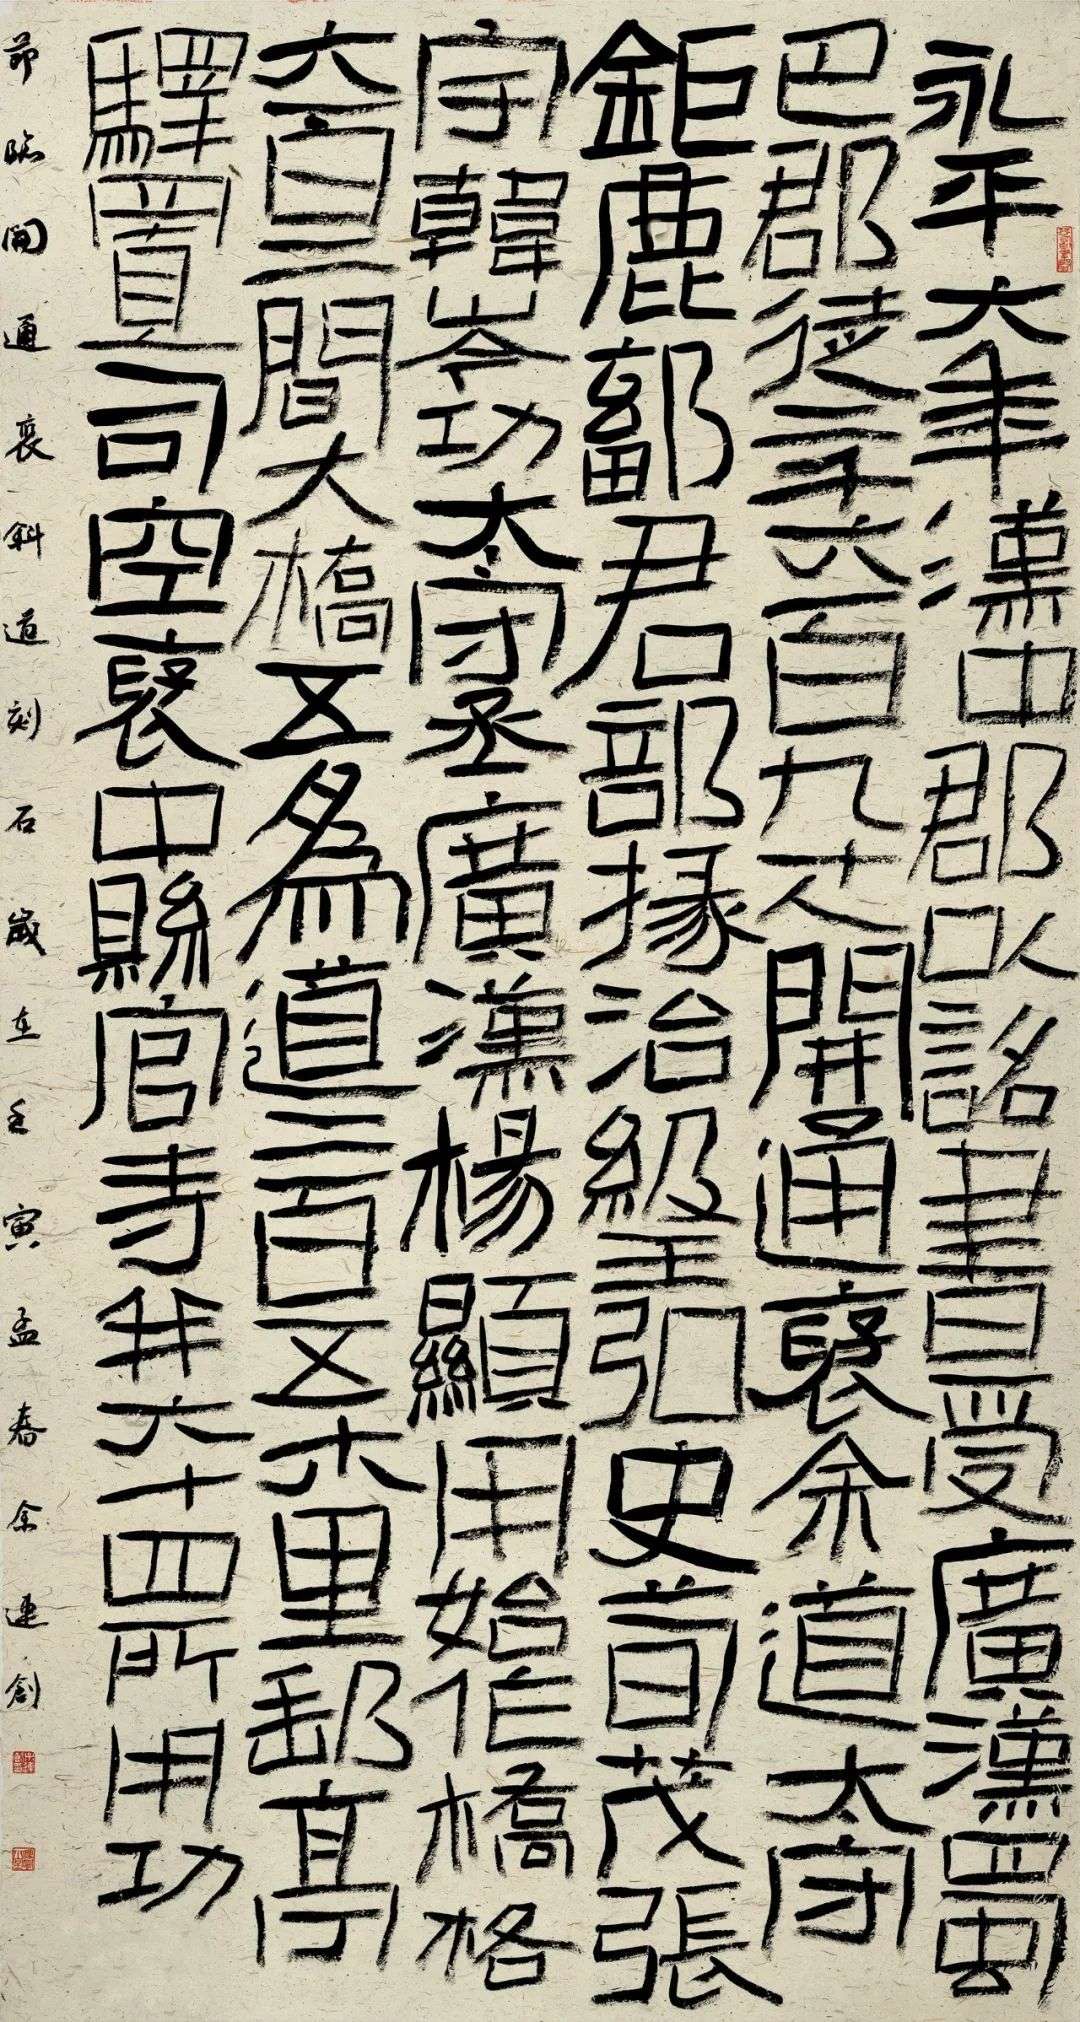 永平六年漢中郡以詔書受廣漢蜀
巴郡徒二千六百九十人開通褒余道太守
鉅鹿鄐君部掾治級王弘史荀茂張
宇韓岑功太守丞廣漢楊顯用始作橋格
六百二間大橋五為道二百五十八里郵亭
驛置司空褒中縣官寺并六十四所用功
節臨開通褒斜道刻石歲在壬寅孟春余連創